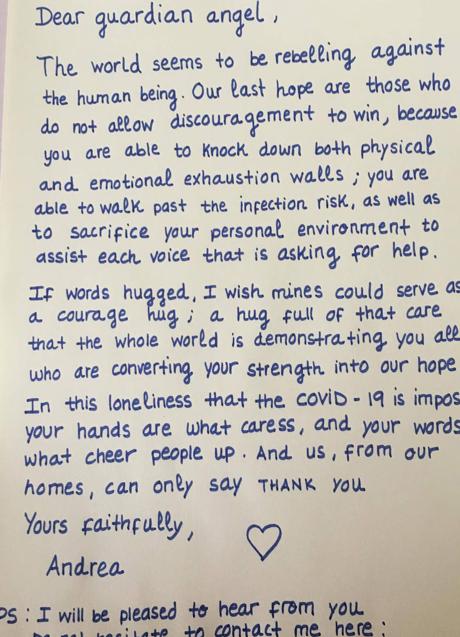 Dear guardian angel,
The world seems to be rebelling against
the human being. Our last hope are those who
do not allow discouragement to win, because
you are able to knock down both physical
and emotional exhaustion walls; you are
able to walk past the infection risk, as well as
to sacrifice your personal environment to
assist each voice that is asking for help.
If words hugged, I wish mines could serve as
a courage hug; a hug full of that care
that the whole world is demonstrating you all
who are converting your strength into our hope
In this loneliness that the COVID-19 is impos
your hands are what caress, and your words
what cheer people up. And us, from our
homes, can only say THANK YOU
Yours faithfully,
Andrea
PS: I will be pleased to hear from you
to contact me here: